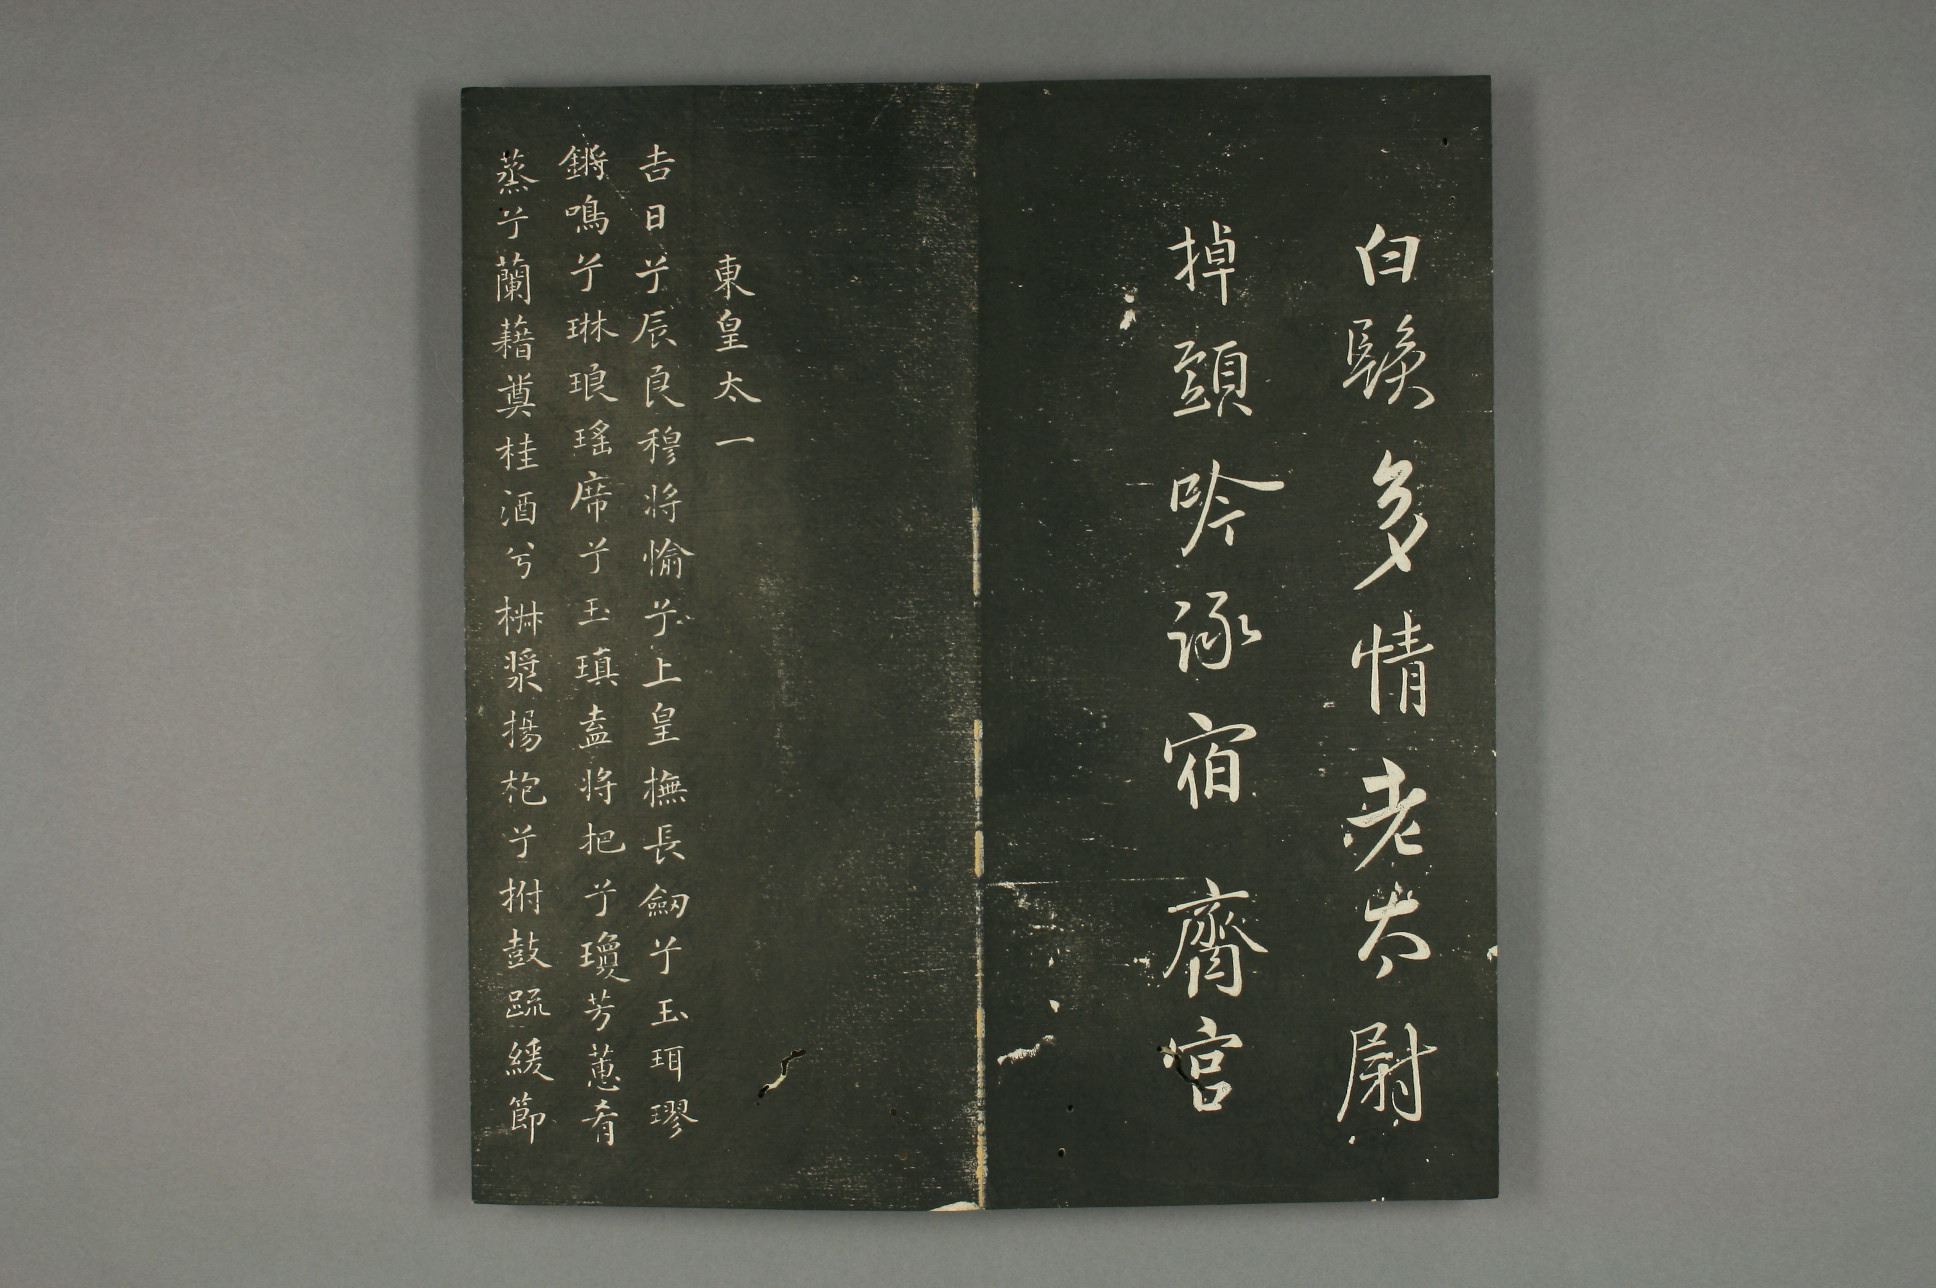 白鬚多情老太尉
掉頭吟詠宿齋宮
東皇太一
吉日兮辰良穆將愉兮上皇撫長劒兮玉珥璆
鏘鳴兮琳琅瑤席兮玉瑱盍將把兮瓊芳蕙肴
蒸兮蘭藉奠桂酒兮椒漿揚枹兮拊鼓疏緩節